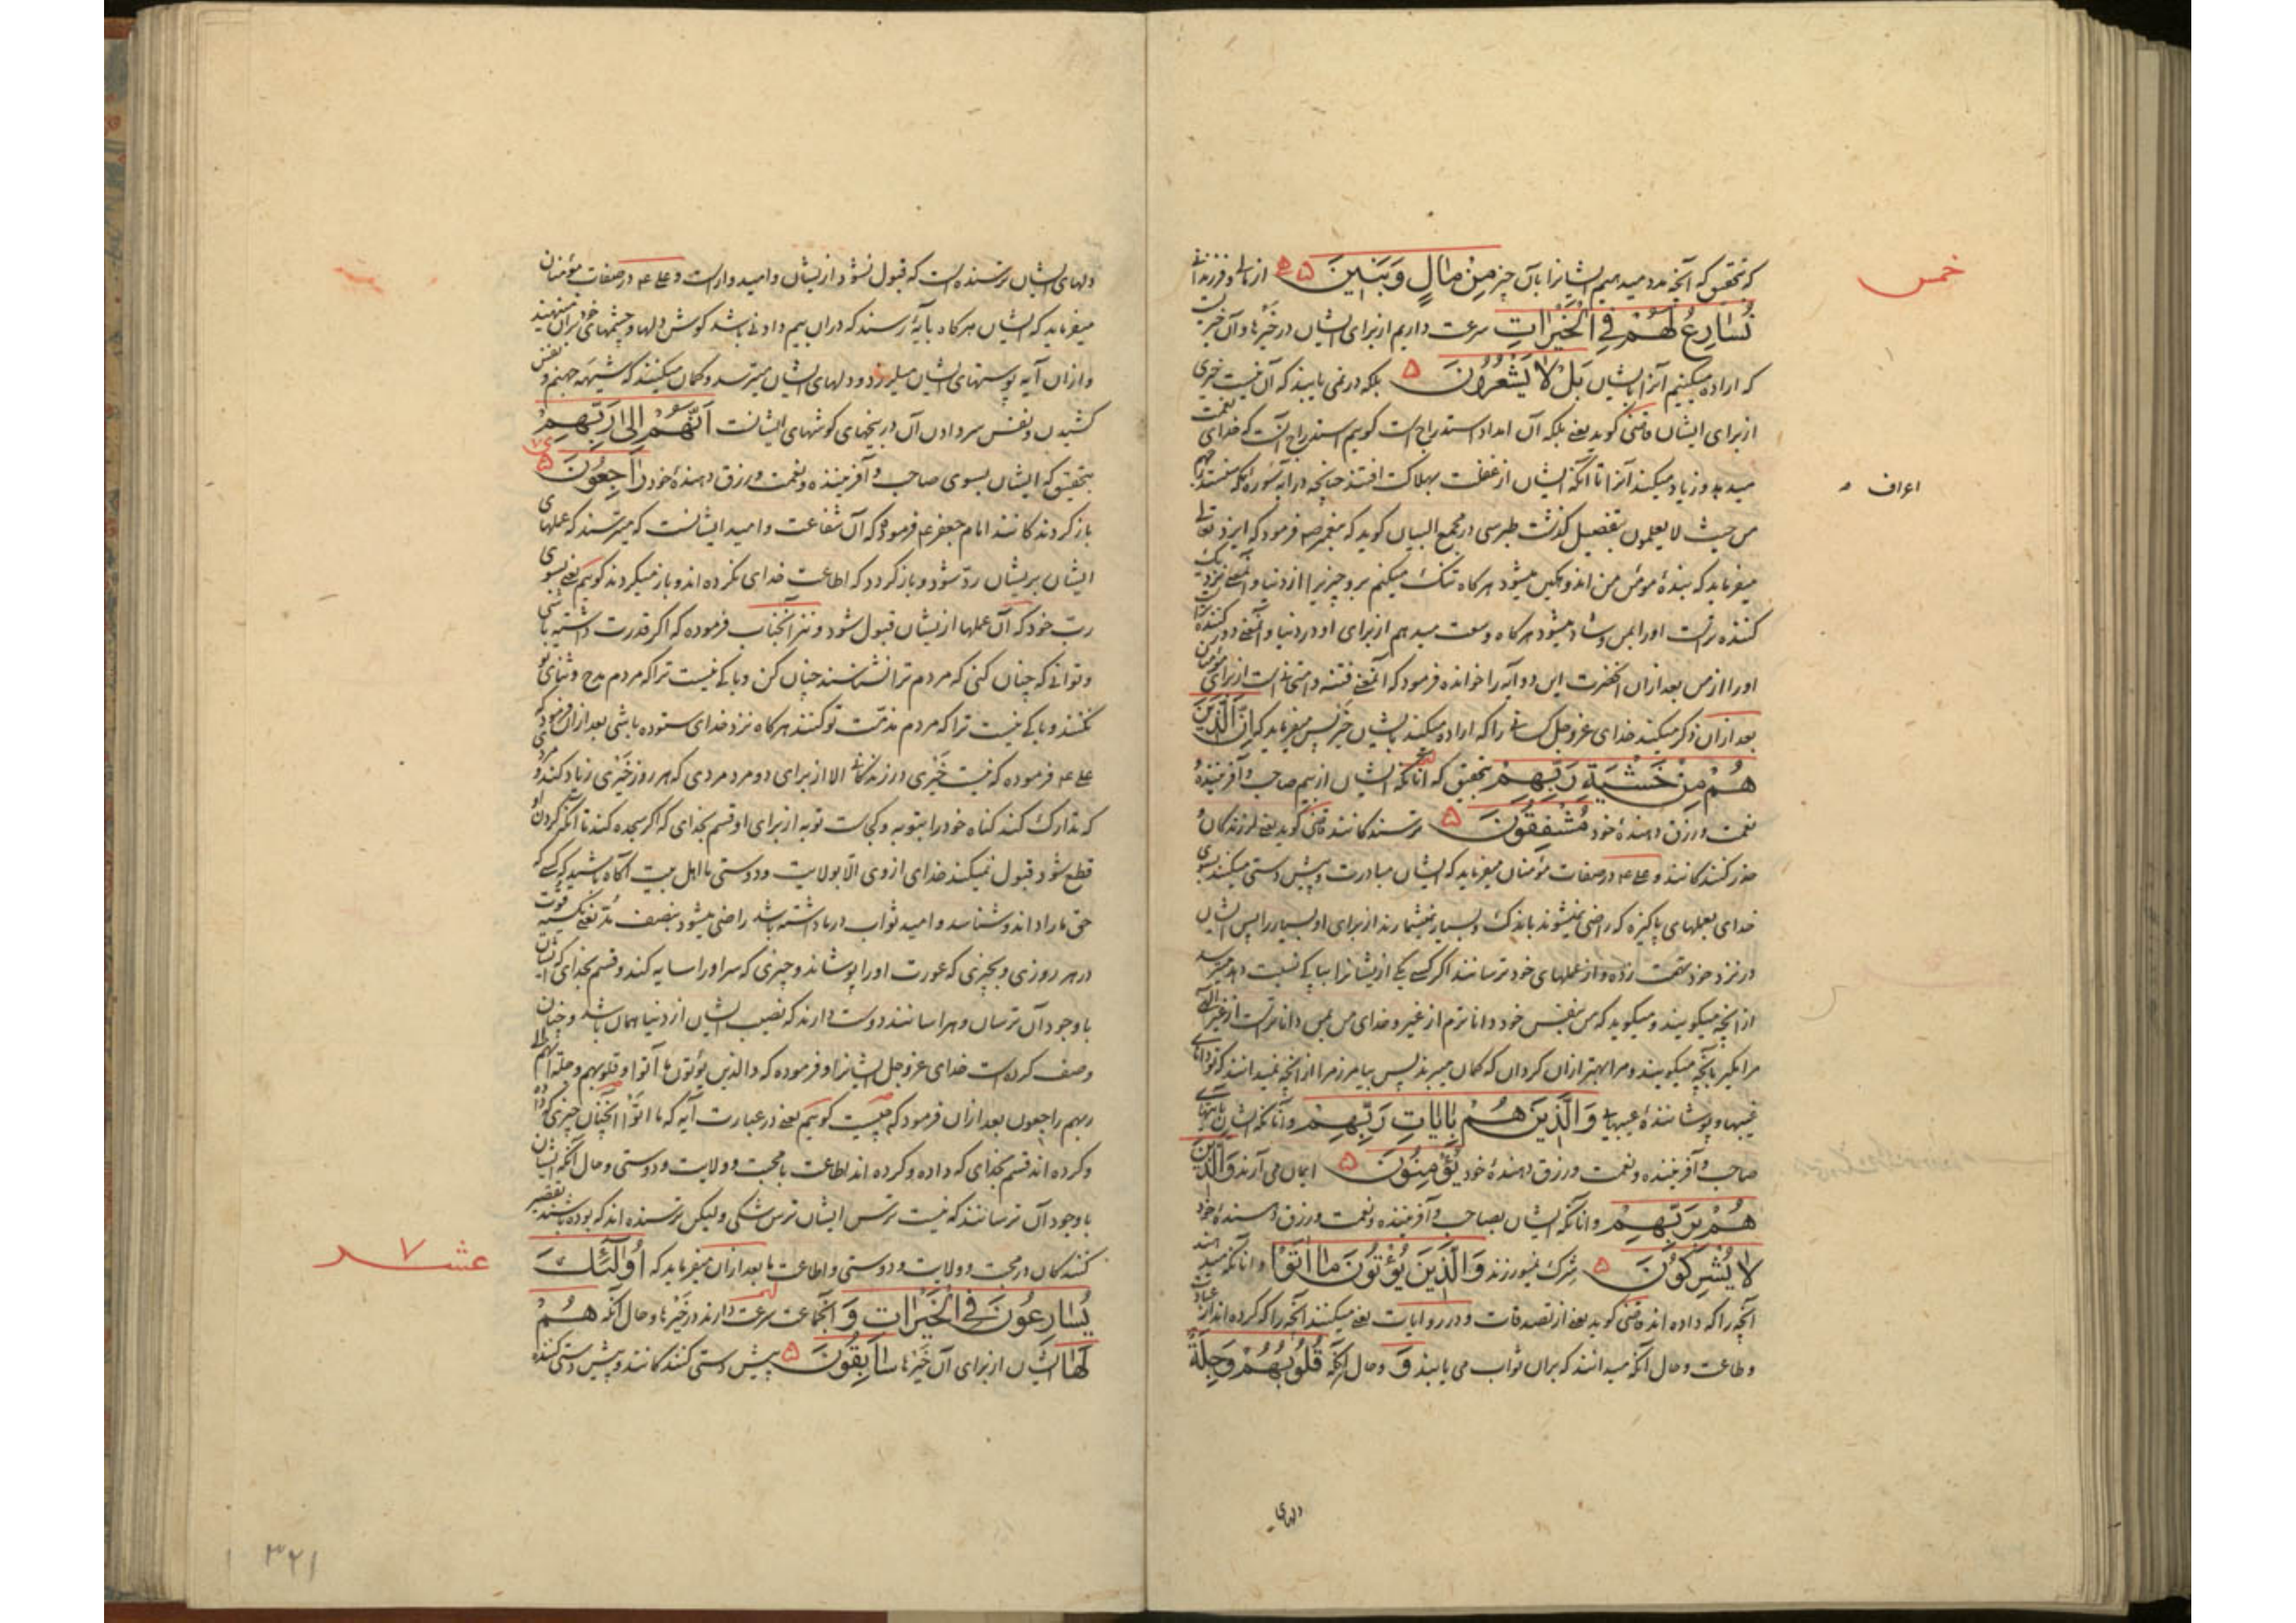 خمس
که تحقیق که آنچه مدد میدهیم ایشانرا بآن چیز مِنْ مٰالٍ وَبَنٖینَ ۵ از مال و فرزندان
نُسٰارِعُ لَهُمْ فِي الْخَیْرٰاتِ سرعت داریم از برای ایشان در خیرها و آن خیریت
که اراده میکنیم آنرا بایشان بَلْ لٰا یَشْعُرُونَ ۵ بلکه در نمی یابند که آن نیست خیری
از برای ایشان قاضی گوید یعنی بلکه آن امداد استدراج است گویم استدراج آنست که خدای نعمت
میدهد و زیاد میکند آنرا تا آنکه ایشان از غفلت بهلاکت افتند چنانچه در آیه سوره که سنستدرجهم
اعراف
من حیث لا یعلمون بتفصیل گذشت طبرسی در مجمع البیان گوید که پیغمبر ص فرمود که ایزد تعالی
میفرماید که بندهٔ مؤمن من اندوهگین میشود هرگاه تنگ میکنم برو چیزیرا از دنیا و آن یعنی نزدیک
کننده تر است او را بمن و شاد میشود هرگاه وسعت میدهم از برای او در دنیا و آن یعنی دور کننده تر است
او را از من بعد ازان آنحضرت این دو آیه را خوانده فرمود که آن یعنی فتنه و امتحان است از برای مؤمنان
بعد ازان ذکر میکند خدای عزوجل کسانی را که اراده میکند بایشان خیر پس میفرماید که إِنَّ الَّذٖینَ
هُمْ مِنْ خَشْیَةِ رَبِّهِمْ بتحقیق که آنانکه ایشان از بیم صاحب و آفرینندهٔ
نعمت و رزق دهندهٔ خود مُشْفِقُونَ ۵ ترسندگانند قاضی گوید یعنی لرزندگان و
حذر کنندگانند و علی ع در صفات مؤمنان میفرماید که ایشان مبادرت و پیش دستی میکنند بسوی
خدای بعملهای پاکیزه که راضی نمیشوند باندک و بسیار نمیشمارند از برای او بسیار را پس ایشان
در نزد خود تهمت زده و از عملهای خود ترسانند اگر کسی یکی از ایشانرا بپاکی نسبت دهد میترسد
از آنچه میگویند و میگوید که من بنفس خود داناترم از غیر و خدای من بمن داناتر است از غیر الهی
مرا مگیر بآنچه میگویند و مرا بهتر ازان گردان که گمان میبرند پس بیامرز مرا از آنچه نمیدانند که تو دانای
غیبها و پوشانندهٔ عیبهایی وَالَّذٖینَ هُمْ بِآیٰاتِ رَبِّهِمْ و آنانکه ایشان بآیتهای
صاحب و آفریننده و نعمت و رزق دهندهٔ خود یُؤْمِنُونَ ۵ ایمان می آرند وَالَّذٖینَ
هُمْ بِرَبِّهِمْ و آنانکه ایشان بصاحب و آفریننده و نعمت و رزق دهندهٔ خود
لٰا یُشْرِکُونَ ۵ شرک نمیورزند وَالَّذٖینَ یُؤْتُونَ مٰا اٰتَوْا و آنانکه میدهند
آنچه را که داده اند قاضی گوید یعنی از تصدقات و در روایات یعنی میکنند آنچه را که کرده اند از عبادت
و طاعت و حال آنکه میدانند که بران ثواب می یابند وَ و حال آنکه قُلُوبُهُمْ وَجِلَةٌ
دلهای
دلهای ایشان ترسنده است که قبول نشود از ایشان و امیدوار است و علی ع در صفات مؤمنان
میفرماید که ایشان هرگاه بآیهٔ رسند که دران بیم دادنی باشد گوش دلها و چشمهای خود بران مینهند
و ازان آیه پوستهای ایشان میلرزد و دلهای ایشان میترسد و گمان میکنند که شیههٔ جهنم و نفس
کشیدن و نفس سر دادن آن در بیخهای گوشهای ایشانست أَنَّهُمْ إِلٰی رَبِّهِمْ
بتحقیق که ایشان بسوی صاحب و آفریننده و نعمت و رزق دهندهٔ خود رٰاجِعُونَ ۵
بازگردندگانند امام جعفر ع فرموده که آن شفاعت و امید ایشانست که میترسند که عملهای
ایشان بریشان رد شود و بازگردد که اطاعت خدای نکرده اند و باز میگردند گویم یعنی بسوی
رب خود که آن عملها از یشان قبول شود و نیز آنجناب فرموده که اگر قدرت داشته باشی
و توانی که چنان کنی که مردم ترا نشناسند چنان کن و باکی نیست ترا که مردم مدح و ثنای تو
نکنند و باکی نیست ترا که مردم مذمت تو کنند هرگاه نزد خدای ستوده باشی بعد ازان فرمود که
علی ع فرموده که نیست خیری در زندگانی الا از برای دو مرد مردی که هر روز خیری زیاد کند و مردی
که تدارک کند گناه خود را بتوبه و کجاست توبه از برای او قسم بخدای که اگر سجده کند تا آنکه گردن او
قطع شود قبول نمیکند خدای از وی الا بولایت و دوستی ما اهل بیت آگاه باشید که کسی که
حق ما را داند و شناسد و امید ثواب در ما داشته باشد راضی میشود بنصف مُدّ یعنی یکسیه قوت
در هر روزی و بچیزی که عورت او را پوشاند و چیزی که سر او را سایه کند و قسم بخدای که ایشان
با وجود آن ترسان و هراسانند دوست دارند که نصیب ایشان از دنیا همان باشد و چنان
وصف کرده است خدای عزوجل ایشانرا و فرموده که والذین یؤتون ما آتوا و قلوبهم وجلة انهم الی
ربهم راجعون بعد ازان فرمود که چیست گویم یعنی در عبارت آیه که ما اتوا آنچنان چیزی که داده
و کرده اند قسم بخدای که داده و کرده اند اطاعت با محبت و ولایت و دوستی و حال آنکه ایشان
با وجود آن ترسانند که نیست ترس ایشان ترس شکی ولیکن ترسنده اند که بوده باشند تقصیر
کنندگان در محبت و ولایت و دوستی و اطاعت ما بعد ازان میفرماید که أُولٰئِکَ
عشر ۷
یُسٰارِعُونَ فِي الْخَیْرٰاتِ وَ آنجماعت سرعت دارند در خیرها و حال آنکه هُمْ
لَهٰا ایشان از برای آن خیرها سٰابِقُونَ ۵ پیش دستی کنندگانند و پیش دستی کننده
۳۲۱